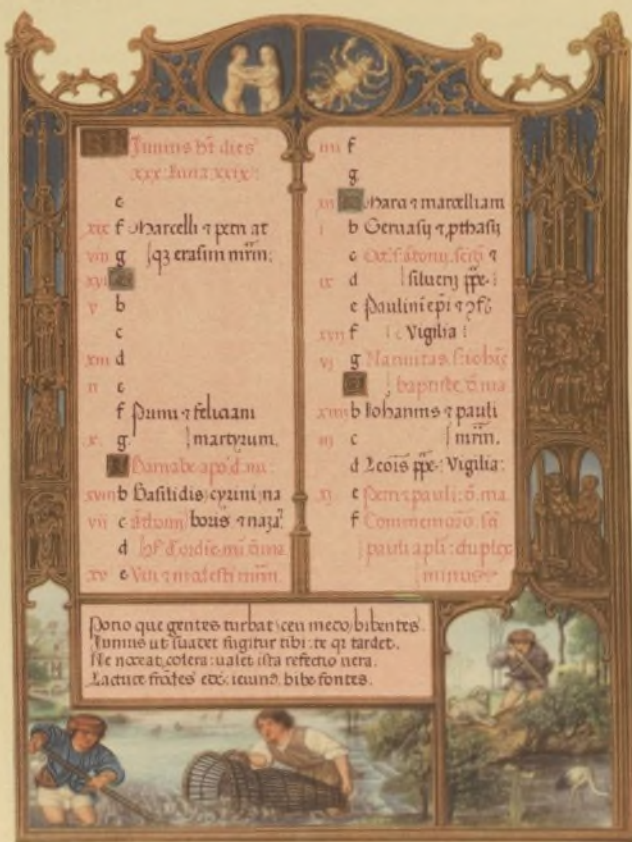 KL Junius h̄t dies
xxx. luna xxix:
e
xix f Marcelli ⁊ petri at
viii g qȝ erasmi mr̄m.
xvi A
v b
c
xiii d
ii e
f Primi ⁊ feliciani
x. g martyrum.
A Barnabe apo
xviii b Basilidis cyrini na
vii c boris ⁊ naza
d
xv e Viti ⁊ modesti mr̄m.
iiii f
g
xii A Marci ⁊ marcelliani
i b Gervasij ⁊ ꝓthasij
c
ix d silverij pp̄e.
e Paulini ep̄i ⁊
xvii f Vigilia
vj g Nativitas s. ioh̄is
A baptiste
xiiii b Johannis ⁊ pauli
iij c mr̄m.
d Leōis pp̄e: Vigilia:
xj e Petri ⁊ pauli
f Commemorō. s̄ti
pauli apl̄i: duplex
minus
Pono que gentes turbat ceu meco bibentes.
Junius ut suadet fugitur tibi: te qȝ tardet.
Ne noceat colera: valet ista refectio vera.
Lactuce frondes ede: ieiun9 bibe fontes.